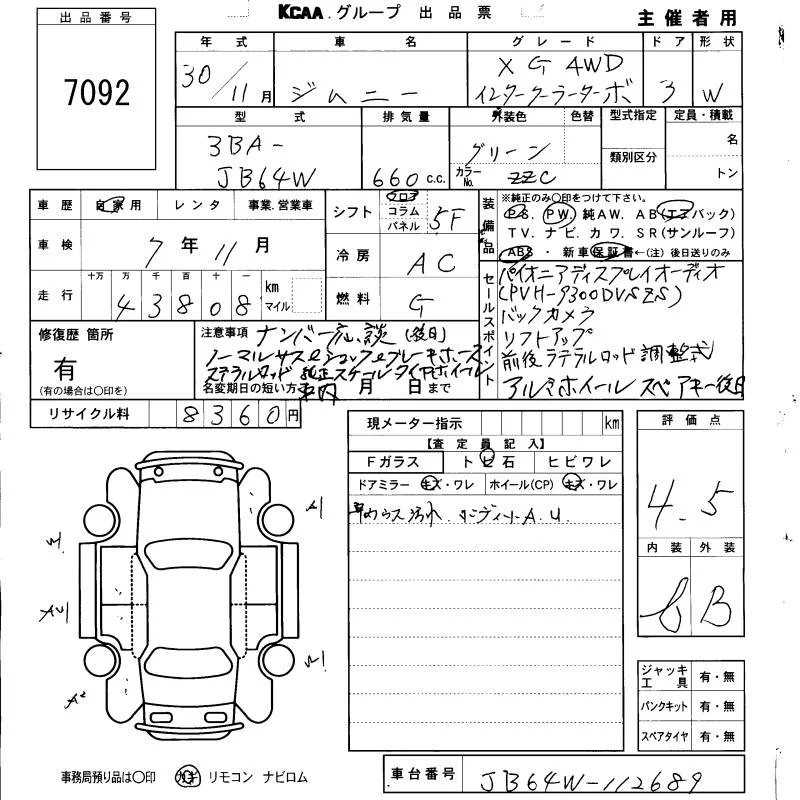 出品番号
7092
KCAA.グループ 出品票
主催者用
年式 車名 グレード ドア 形状
30/11月 ジムニー XG 4WD インタークーラーターボ 3 W
型式 排気量 外装色 色替 型式指定 定員・積載
3BA-JB64W 660 c.c. グリーン 名
カラーNo. ZZC 類別区分 トン
車歴 自家用 レンタ 事業.営業車
シフト フロア コラム パネル 5F
装備品 ※純正のみ○印をつけて下さい。
PS. PW. 純AW. AB(エアバック)
TV. ナビ. カワ. SR(サンルーフ)
ABS ・ 新車保証書←(注)後日送りのみ
車検 7年11月
冷房 AC
走行 十万 万 千 百 十 一 km マイル
43808
燃料 G
セールスポイント
パイオニアディスプレイオーディオ
(PVH-9300DVSZS)
バックカメラ
リフトアップ
前後ラテラルロッド調整式
アルミホイール スペアキー後日
修復歴 箇所
有
(有の場合は○印を)
注意事項 ナンバー応談(後日)
ノーマルサス&ショック&ブレーキホース
ラテラルロッド 純正スチール タイヤホイール
車内
名変期日の短い方 月 日まで
リサイクル料 8360円
現メーター指示 km
【査定員記入】
Fガラス トビ石 ヒビワレ
ドアミラー キズ・ワレ ホイール(CP) キズ・ワレ
汚れ.
A.U
評価点
4.5
内装 外装
B
A1
AU
A2
ジャッキ工具 有・無
パンクキット 有・無
スペアタイヤ 有・無
事務局預り品は○印 カギ リモコン ナビロム
車台番号 JB64W-112689